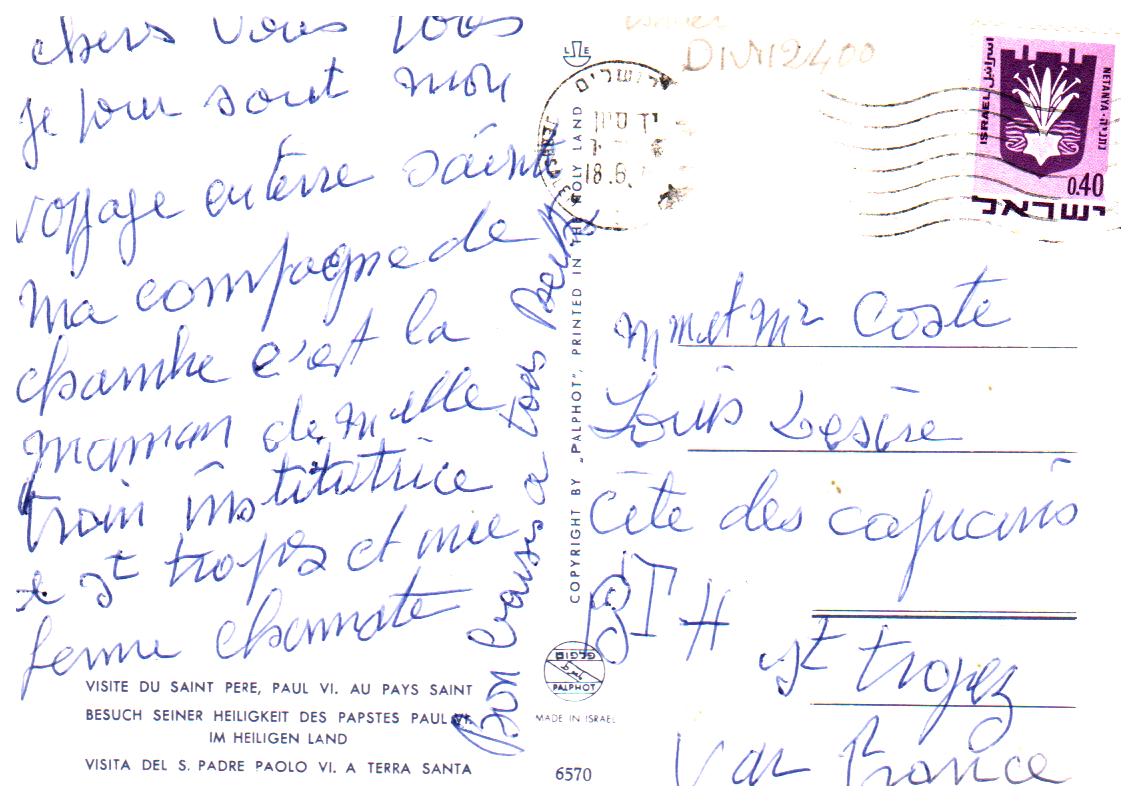 chers vous tous
je pour sout mon
voyage enterre sainte
ma compagne de
chambre c'est la
maman de melle
institutrice
a st tropes et une
femme charmate
Bon Baises a tous Berthe
VISITE DU SAINT PERE, PAUL VI. AU PAYS SAINT
BESUCH SEINER HEILIGKEIT DES PAPSTES PAUL VI.
IM HEILIGEN LAND
VISITA DEL S. PADRE PAOLO VI. A TERRA SANTA
COPYRIGHT BY „PALPHOT", PRINTED IN THE HOLY LAND
L E
PALPHOT
MADE IN ISRAEL
6570
DIVN12400
ירושלים
יד סיון
18.6.
ISRAEL اسرائيل
NETANYA · נתניה
0.40
ישראל
mme et Mr Coste
Louis Desire
Cite des capucins
BT H
st tropez
Var France